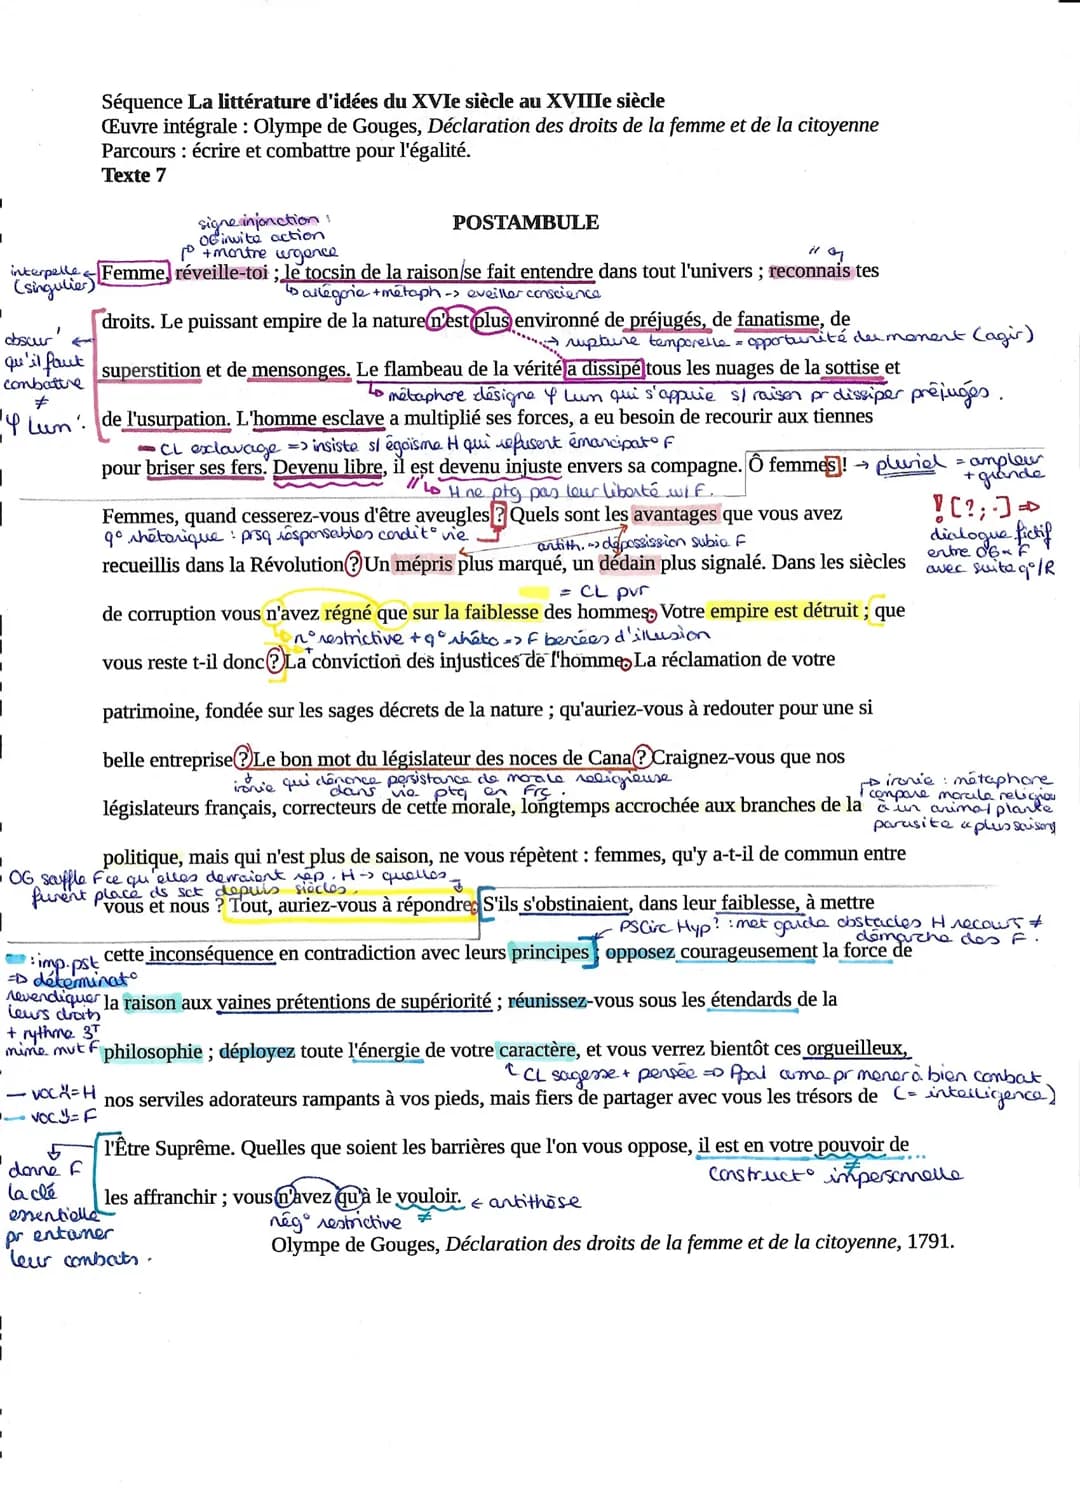 Séquence La littérature d'idées du XVIe siècle au XVIIIe siècle
Œuvre intégrale : Olympe de Gouges, Déclaration des droits de la femme et de la citoyenne
Parcours : écrire et combattre pour l'égalité.
Texte 7
POSTAMBULE
signe injonction :
OG invite action
+ montre urgence
interpelle
(singulier)
Femme, réveille-toi ; le tocsin de la raison se fait entendre dans tout l'univers ; reconnais tes
allégorie + métaph -> éveiller conscience
droits. Le puissant empire de la nature n'est plus environné de préjugés, de fanatisme, de
-> rupture temporelle = opportunité du moment (agir)
obscur'
qu'il faut
combattre
≠
φ Lum'.
superstition et de mensonges. Le flambeau de la vérité a dissipé tous les nuages de la sottise et
métaphore désigne φ Lum qui s'appuie s/ raison pr dissiper préjugés.
de l'usurpation. L'homme esclave a multiplié ses forces, a eu besoin de recourir aux tiennes
CL esclavage => insiste s/ égoïsme H qui refusent émancipat° F
pour briser ses fers. Devenu libre, il est devenu injuste envers sa compagne. Ô femmes ! -> pluriel = ampleur
+ grande
H ne ptg pas leur liberté w/ F.
Femmes, quand cesserez-vous d'être aveugles ? Quels sont les avantages que vous avez
q° rhétorique : prsq responsables condit° vie
antith. -> dépossission subie F
! [?;.] =>
dialogue fictif
entre OG & F
avec suite q°/R
recueillis dans la Révolution ? Un mépris plus marqué, un dédain plus signalé. Dans les siècles
= CL pvr
de corruption vous n'avez régné que sur la faiblesse des hommes. Votre empire est détruit ; que
n° restrictive + q° rhéto => F bercées d'illusion
vous reste t-il donc ? La conviction des injustices de l'homme. La réclamation de votre
patrimoine, fondée sur les sages décrets de la nature ; qu'auriez-vous à redouter pour une si
belle entreprise ? Le bon mot du législateur des noces de Cana ? Craignez-vous que nos
ironie qui dénonce persistance de morale religieuse
dans vie ptq en Frç.
-> ironie : métaphore
compare morale religieu
à un animal/plante
parasite "plus saison"
législateurs français, correcteurs de cette morale, longtemps accrochée aux branches de la
politique, mais qui n'est plus de saison, ne vous répètent : femmes, qu'y a-t-il de commun entre
OG souffle F ce qu'elles devraient rép. H -> quelles
furent place ds sct depuis siècles.
vous et nous ? Tout, auriez-vous à répondre. S'ils s'obstinaient, dans leur faiblesse, à mettre
PSCirc Hyp? : met garde obstacles H recours ≠
démarche des F.
cette inconséquence en contradiction avec leurs principes ; opposez courageusement la force de
: imp. pst
=> déterminat°
revendiquer
leurs droits
+ rythme 3T
mime mvt F
la raison aux vaines prétentions de supériorité ; réunissez-vous sous les étendards de la
philosophie ; déployez toute l'énergie de votre caractère, et vous verrez bientôt ces orgueilleux,
CL sagesse + pensée => Ppal arme pr mener à bien combat
(= intelligence)
— voc X = H
— voc Y = F
nos serviles adorateurs rampants à vos pieds, mais fiers de partager avec vous les trésors de
l'Être Suprême. Quelles que soient les barrières que l'on vous oppose, il est en votre pouvoir de
construct° impersonnelle
donne F
la clé
essentielle
pr entamer
leur combats.
les affranchir ; vous n'avez qu'à le vouloir. <- antithèse
nég° restrictive ≠
Olympe de Gouges, Déclaration des droits de la femme et de la citoyenne, 1791.